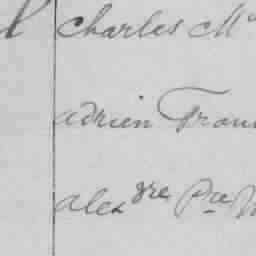 Charles M
adrien Fran
alexdre Pre